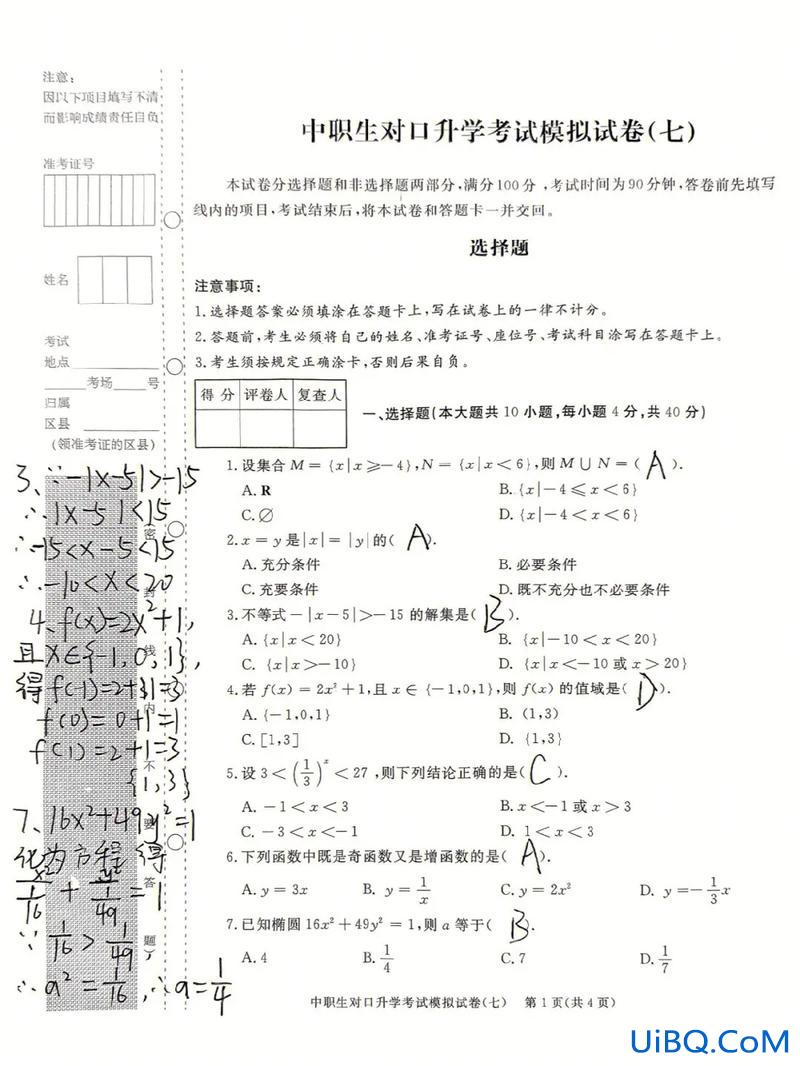 注意：
因以下项目填写不清
而影响成绩责任自负
准考证号
姓名
考试
地点
考场 号
归属
区县
(领准考证的区县)
中职生对口升学考试模拟试卷(七)
本试卷分选择题和非选择题两部分,满分100分,考试时间为90分钟,答卷前先填写
线内的项目,考试结束后,将本试卷和答题卡一并交回。
选择题
注意事项：
1.选择题答案必须填涂在答题卡上,写在试卷上的一律不计分。
2.答题前,考生必须将自己的姓名、准考证号、座位号、考试科目涂写在答题卡上。
3.考生须按规定正确涂卡,否则后果自负。
得 分 评卷人 复查人
一、选择题(本大题共 10 小题,每小题 4 分,共 40 分)
1.设集合 M = {x|x⩾-4},N = {x|x<6},则 M∪N=( A ).
A. R B. {x|-4⩽x<6}
C. ∅ D. {x|-4<x<6}
2.x = y 是|x| = |y|的( A ).
A. 充分条件 B. 必要条件
C. 充要条件 D. 既不充分也不必要条件
3.不等式-|x-5|>-15 的解集是( B ).
A. {x|x<20} B. {x|-10<x<20}
C. {x|x>-10} D. {x|x<-10 或 x>20}
4.若 f(x) = 2x²+1,且 x∈{-1,0,1},则 f(x) 的值域是( D ).
A. {-1,0,1} B. (1,3)
C. [1,3] D. {1,3}
5.设 3<(1/3)^x<27,则下列结论正确的是( C ).
A. -1<x<3 B. x<-1 或 x>3
C. -3<x<-1 D. 1<x<3
6.下列函数中既是奇函数又是增函数的是( A ).
A. y = 3x B. y = 1/x C. y = 2x² D. y = -1/3x
7.已知椭圆 16x²+49y² = 1,则 a 等于( B ).
A. 4 B. 1/4 C. 7 D. 1/7
中职生对口升学考试模拟试卷(七) 第 1 页(共 4 页)
3、∵-|x-5|>-15
∴|x-5|<15
∴-15<x-5<15
∴-10<x<20
4、f(x)=2x²+1,
且x∈{-1,0,1},
得f(-1)=2+1=3
f(0)=0+1=1
f(1)=2+1=3
{1,3}
7、16x²+49y²=1
化为方程得
x²/(1/16) + y²/(1/49) = 1
∵ 1/16 > 1/49
∴a²=1/16,∴a=1/4
密
封
线
内
不
要
答
题
UiBQ.CoM